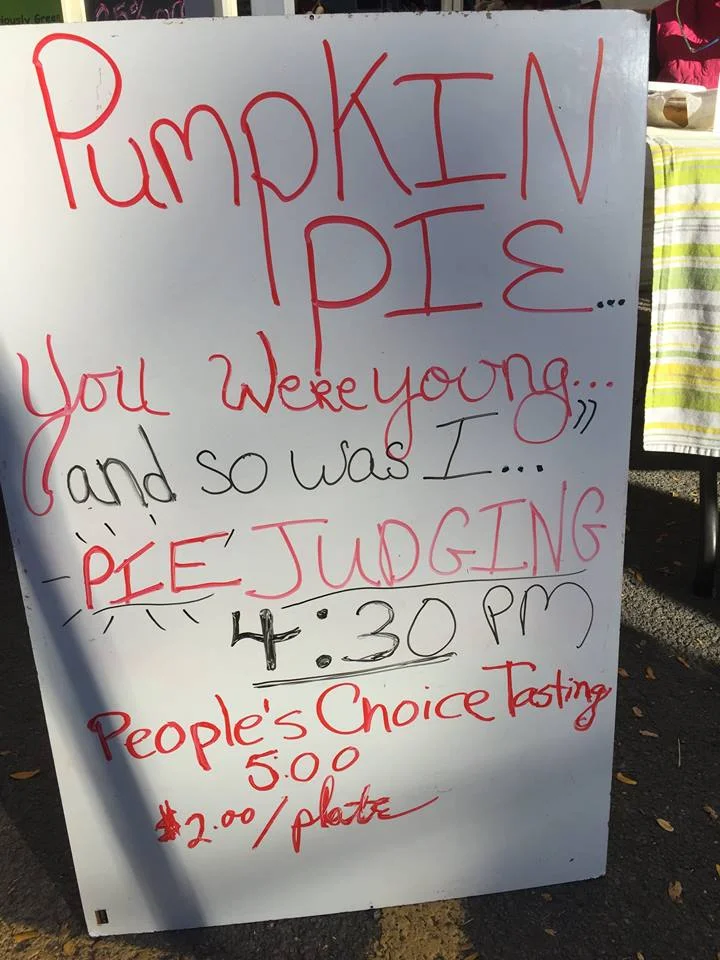 PumpKIN
PIE...
You Were young...
and so was I..."
PIE JUDGING
4:30 PM
People's Choice Tasting
5:00
$2.00/plate